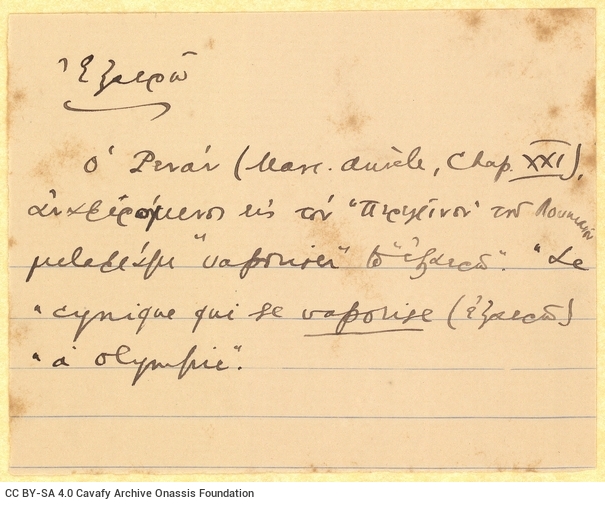 Ἐξαερῶ
Ὁ Ρενάν (Marc-Aurèle, Chap. XXI),
ἀναφερόμενος εἰς τὸν "Περεγρῖνον" τοῦ Λουκιανοῦ
μεταφράζει "vaporiser" τὸ "ἐξαερῶ". "Le
"cynique qui se vaporise (ἐξαερῶ)
"à Olympie".
CC BY-SA 4.0 Cavafy Archive Onassis Foundation